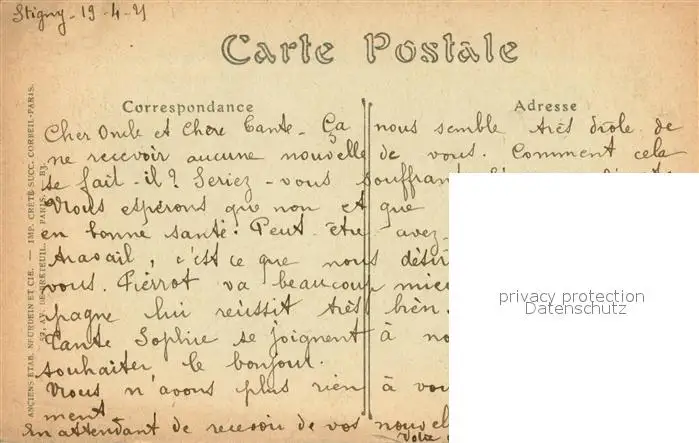 Stigny - 19-4-21
Carte Postale
Correspondance
Adresse
Cher Oncle et Chère Tante - Ça nous semble très drôle de
ne recevoir aucune nouvelle de vous. Comment cela
se fait-il? Seriez-vous souffrant
Nous espérons que non et que
en bonne santé. Peut être avez-
travail, c'est ce que nous
vous. Pierrot va beaucoup
pagne lui réussit très bien.
Tante Sophie se joignent à
souhaiter le bonjour.
Nous n'avons plus rien à
ment
En attendant de recevoir de vos
ANCIENS ETAB. NEURDEIN ET CIE. — IMP. CRÉTÉ SUCC. CORBEIL-PARIS.
privacy protection
Datenschutz